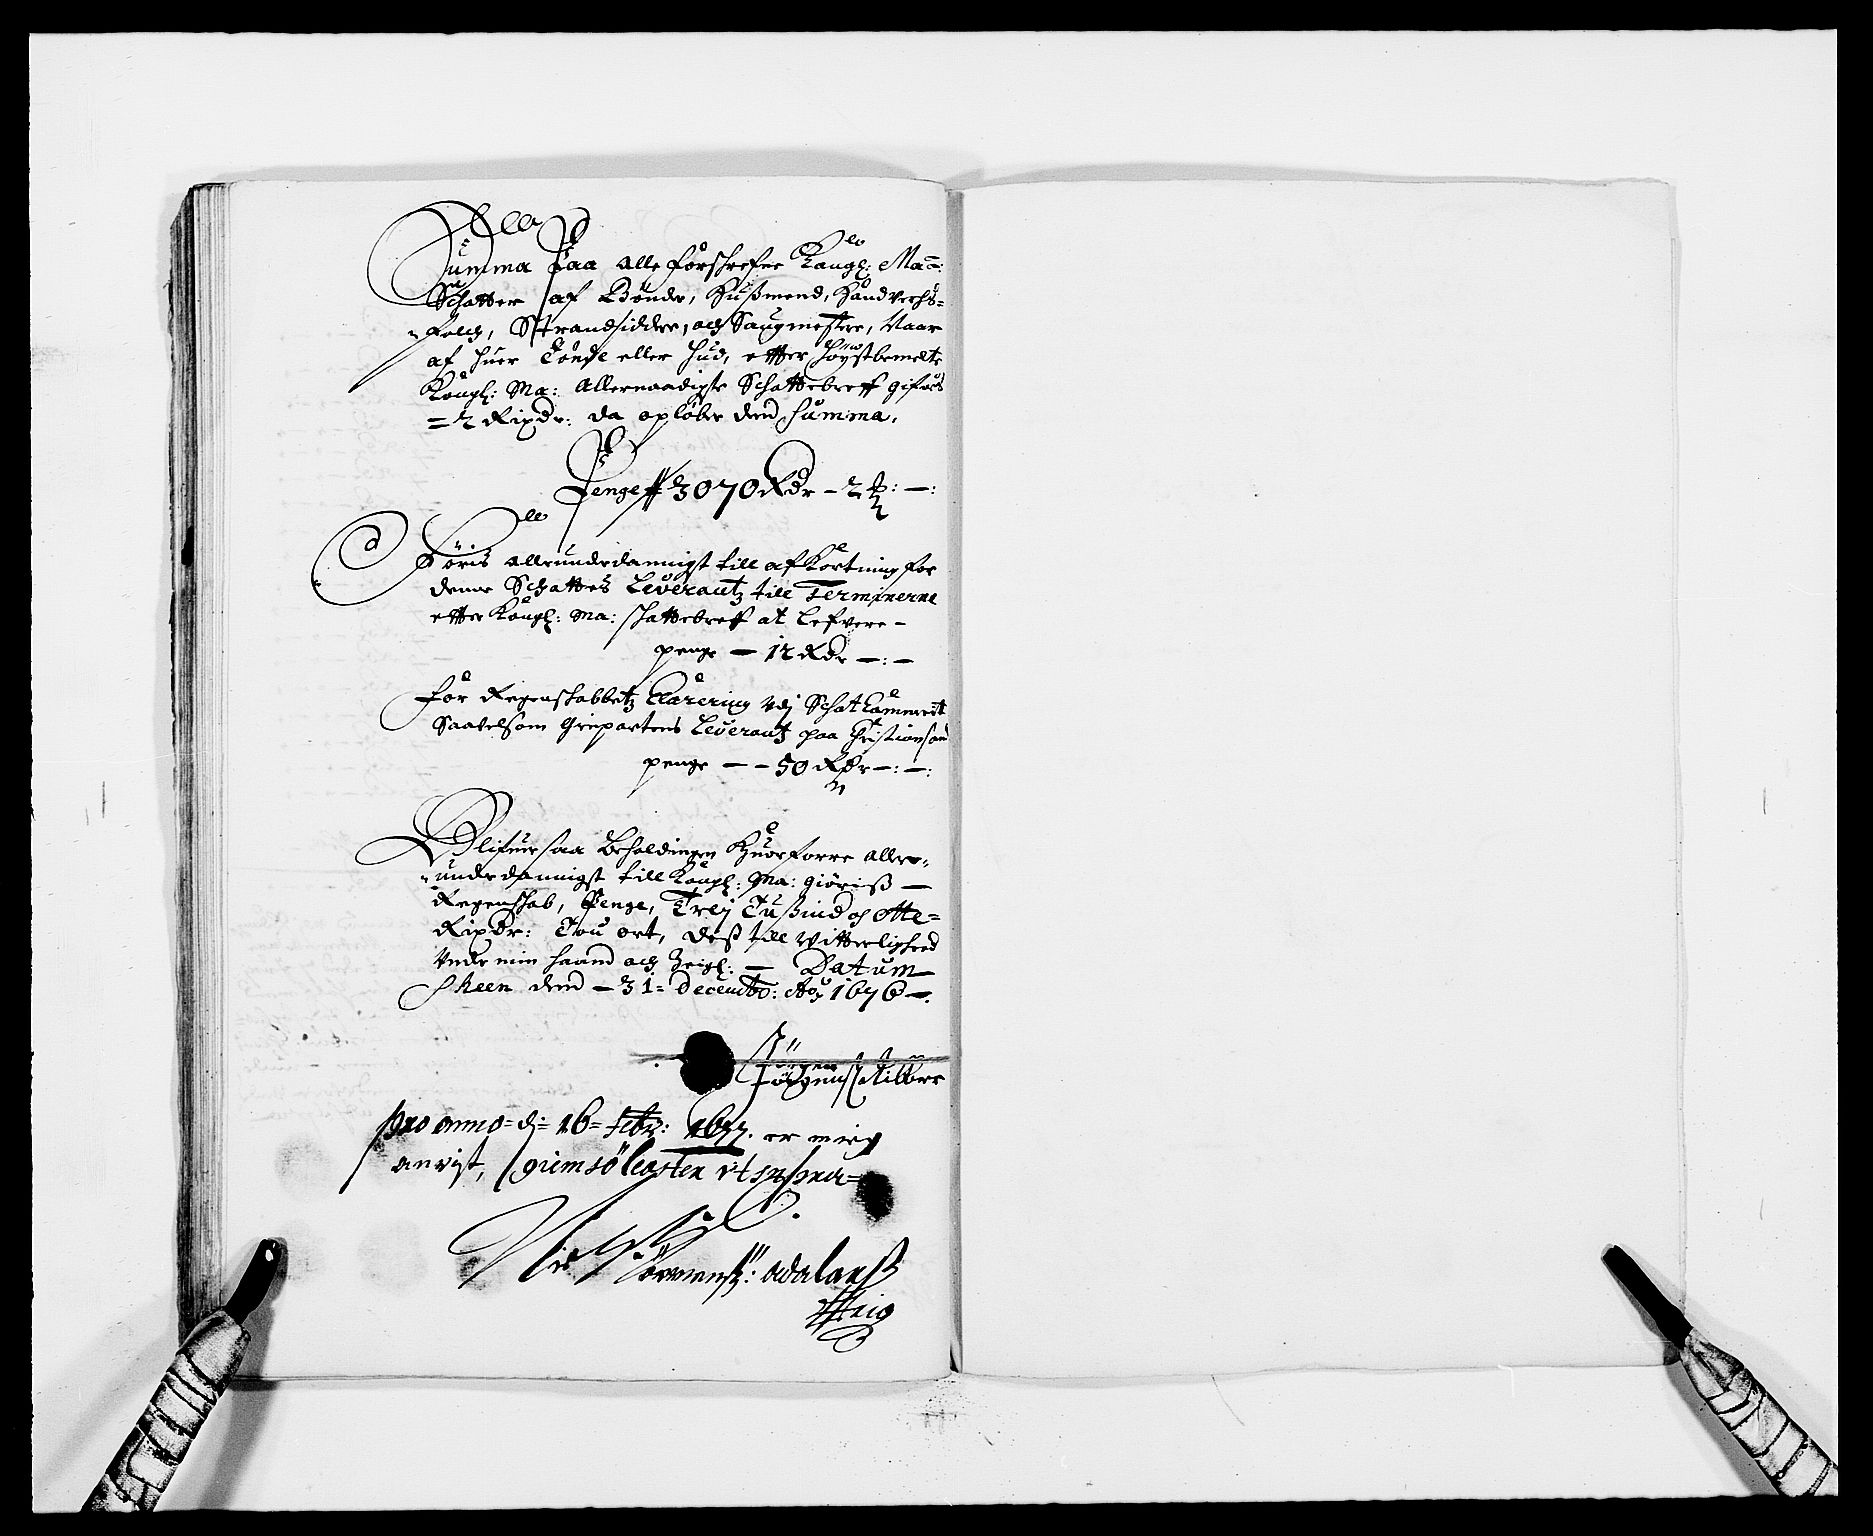 Summa paa alle forschrefne Kongl: Ma:
Schatter af Bönder, Hußmend, Handverchs-
folch, Strandsidder, och Saugmestere, Naar
af huer Tönde eller Hud, etter höystbemelte
Kongl: Ma: Allernaadigste Schattebreff gifues
= 2 Rixdr: da oplöber dend summa.
Penge # 3070 Rdr - 2
Föris allerunderdannigst till afkortning for
denne Schattes Leverantz till Terminerne
etter Kongl: Ma: schattebreff at Lefvere -
penge — 12 Rdr —:—
For Regenskabbetz Clarering vdj Schat Cammerit
Saavelsom Leverantz paa Christiansand
penge — — 50 Rdr —:—:
Blifuer saa Beholdingen Huorforre aller-
underdannigst till Kongl: Ma: giöriß —
Regenschab, Penge, Trej Tußind og Otte =
Rixdr: Tou ort, deß till Vitterlighed
Under min haand och Zeigl: — Datum
Skeen dend — 31 = Decembr: Ao 1676 —.
Jörgen
Pro anno = dj = 16 = Febr: 1677. er mig
anvist,